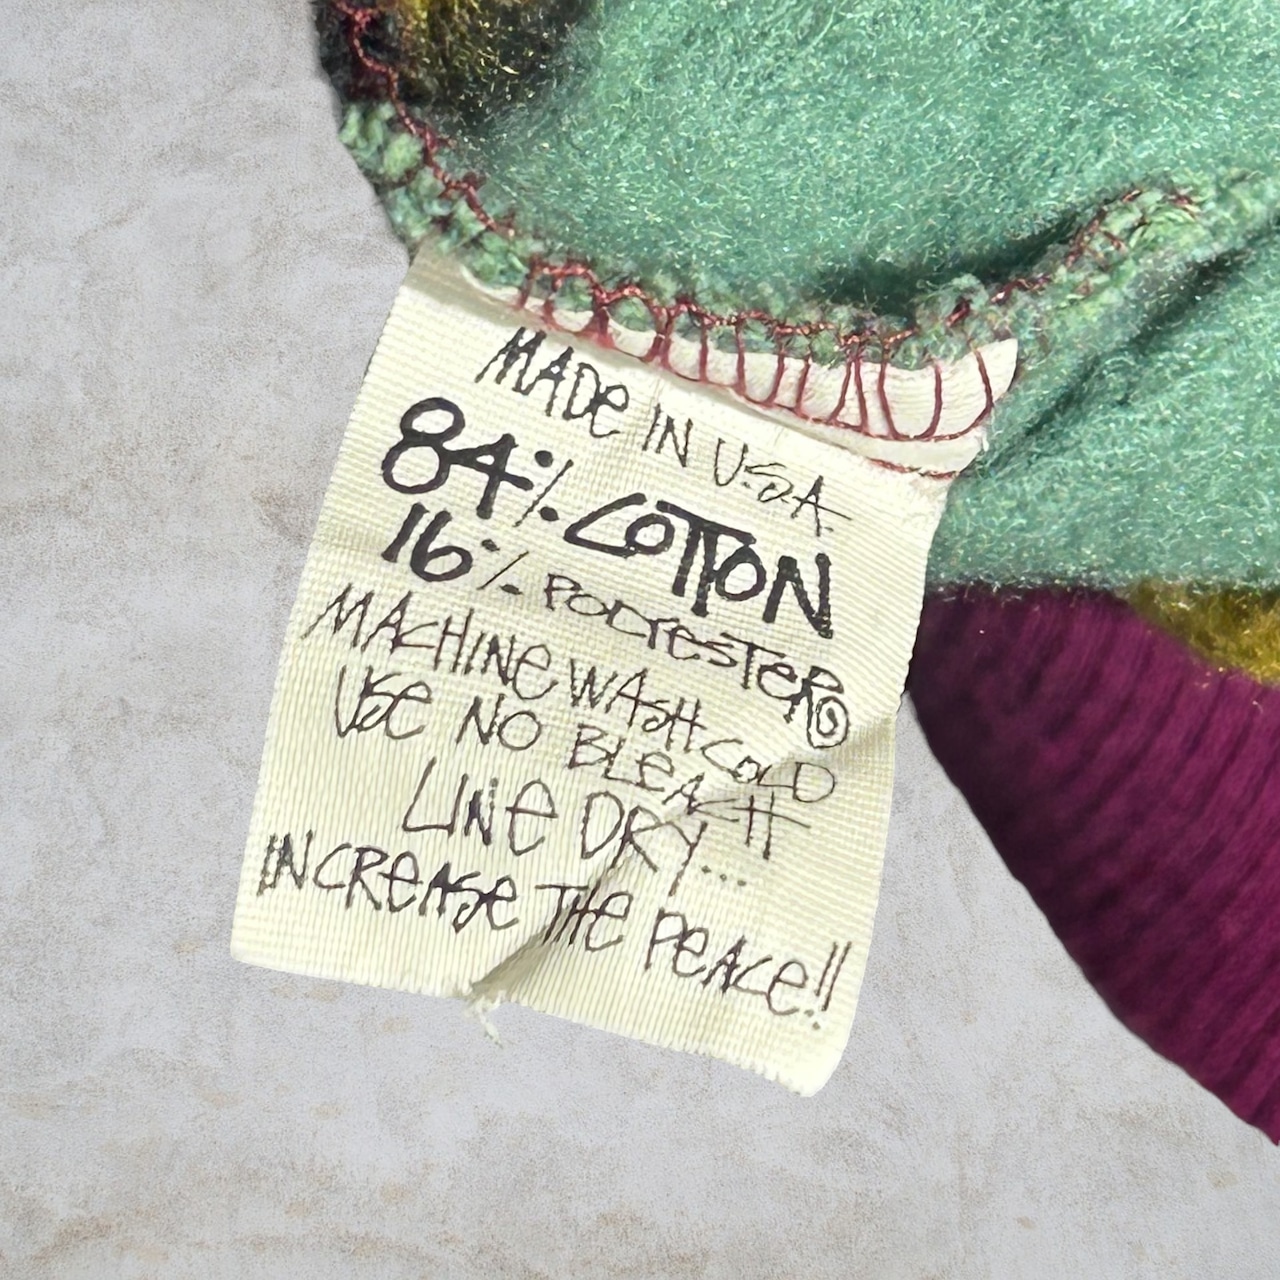 MADE IN U.S.A.
84% COTTON
16% POLYESTER
MACHINE WASH COLD
USE NO BLEACH
LINE DRY...
INCREASE THE PEACE!!